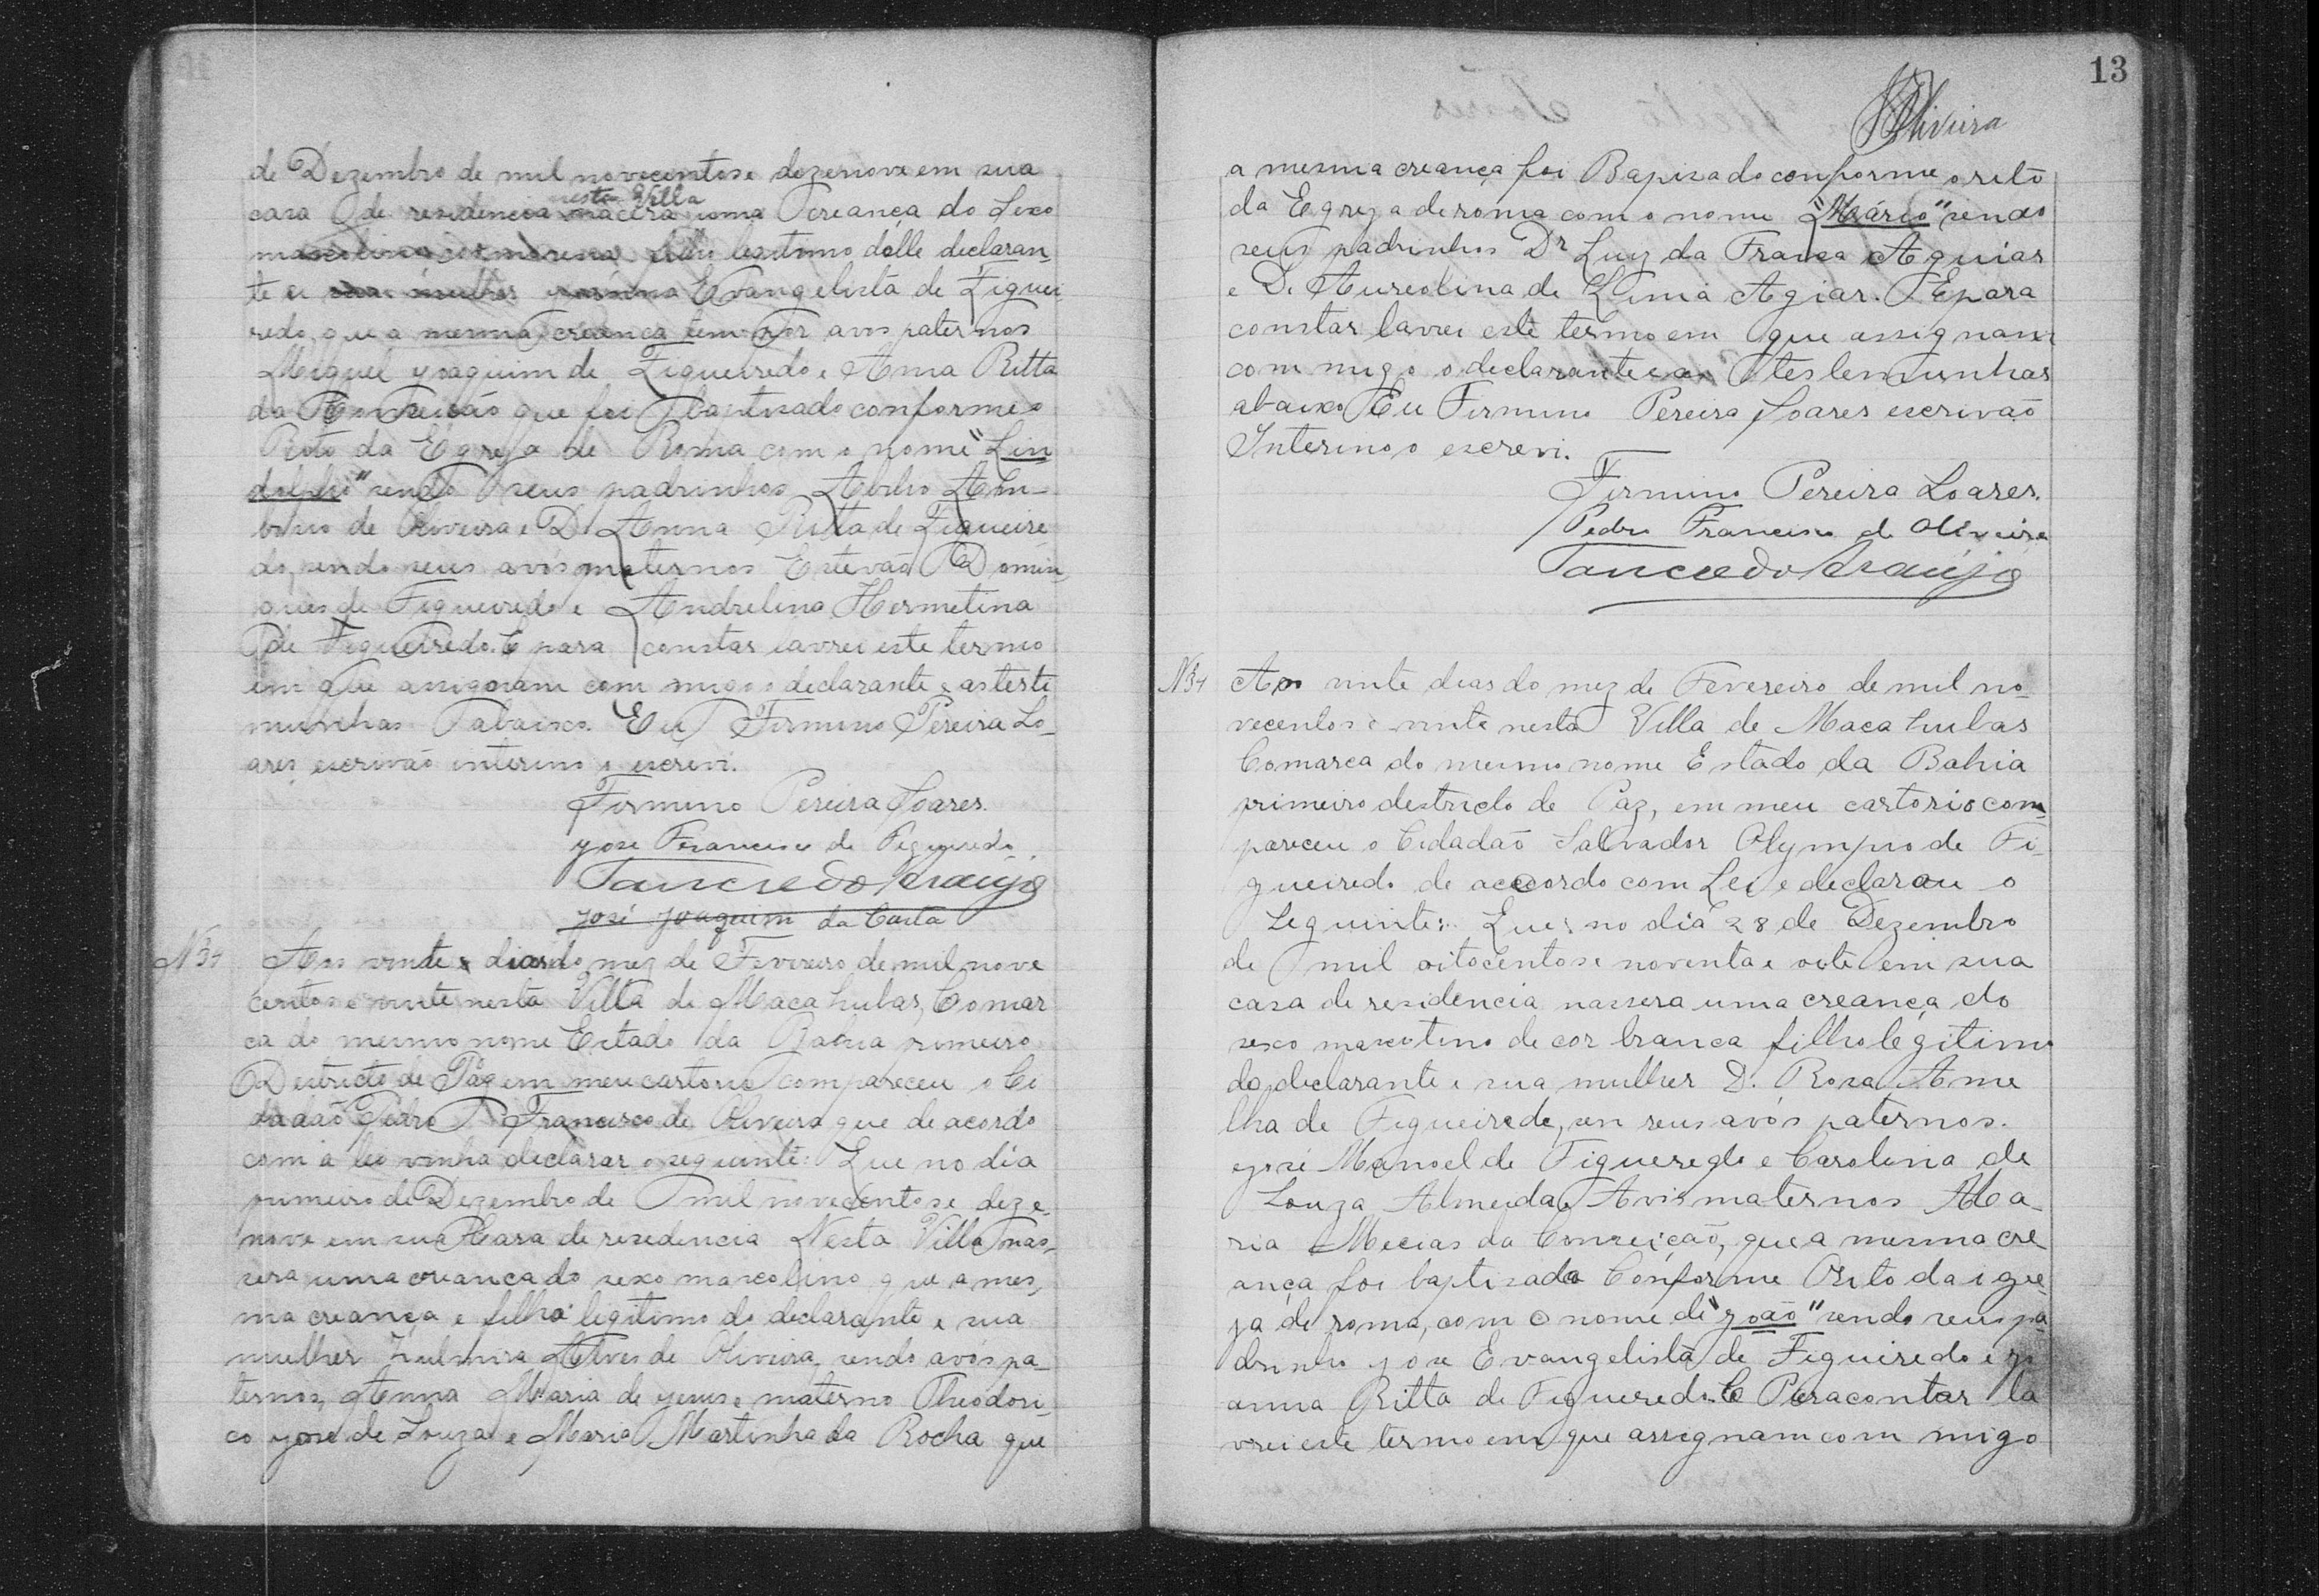 de Dezembro de mil novecentos e dezenove em sua
nesta Villa
casa de residencia nacera uma creança do sexo
masculino cor morena filho legitimo delle declaran,
te e sua mulher Evangelista de Figuei
redo, que a mesma creança tem por avos paternos
Miguel yoaquim de Figueiredo e Anna Ritta
da Conceicão que foi baptisado conforme o
Rito da Egreja de Roma com o nome "Lin
dolpho" sendo seus padrinhos
de Oliveira e D. Anna Ritta de Figueire
do, sendo seus avós maternos Estevão Domin,
gues de Figueiredo e Andrelina Hermetina
de Figueiredo. E para constar lavrei este termo
em que assignam com migo o declarante e as teste
munhas abaixo. Eu Firmino Pereira So_
ares escrivão interino o escrevi.
Firmino Pereira Soares.
yose Francisco de Figueiredo.
Tancredo Araujo
josé joaquim da Costa
N 3+
Aos vinte dias do mez de Fevereiro de mil nove
centos e vinte nesta Villa de Macahubas, Comar
ca do mesmo nome Estado da Bahia primeiro
Destricto de Paz em meu cartorio compareceu o Ci
dadão Pedro Francisco de Oliveira que de acordo
com a lei vinha declarar o seguinte: Que no dia
primeiro de Dezembro de mil novecentos e deze,
nove em sua Casa de residencia Nesta Villa nas,
sera uma creança do sexo mascolino que a mes,
ma creança e filho legitimo do declarante e sua
mulher Zulmira Alves de Oliveira, sendo avós pa_
ternos, Anna Maria de yesus e materno Theodori_
co yose de Souza e Maria Martinha da Rocha que
13
Oliveira
a mesma creança foi Bapisado conforme o rito
da Egreja de roma com o nome "Mário" sendo
seus padrinhos Dr Luiz da Franca Aguiar
e D. Aureolina de Lima Agiar. E para
constar lavrei este termo em que assignam
com migo o declarante e as testemunhas
abaixo Eu Firmino Pereira Soares escrivão
Interino o escrevi.
Firmino Pereira Soares.
Pedro Francisco de Oliveira
Tancredo Araujo
N 3+
Aos vinte dias do mez de Fevereiro de mil no_
vecentos e vinte nesta Villa de Macahubas
Comarca do mesmo nome Estado da Bahia
primeiro destricto de Paz, em meu cartorio com,
pareceu o Cidadão Salvador Olympio de Fi_
gueiredo de accordo com Lei e declarou o
Seguinte: Que: no dia 28 de Dezembro
de mil oitocentos e noventa e oito em sua
casa de residencia nassera uma creança do
sexo mascolino de cor branca filho legitimo
do declarante e sua mulher D. Rosa Ame
lha de Figueiredo, sen seus avós paternos.
yosé Manoel de Figueredo e Carolina de
Souza Almeida, Avós maternos Ma_
ria Mecias da Conceição, que a mesma cre_
ança foi baptisada Conforme O rito da igre_
ja de roma, com o nome de "yoão" sendo seus pa_
drinhos yose Evangelista de Figueiredo e yo
anna Ritta de Figueredo. E Para contar la
vrei este termo em que assignam com migo